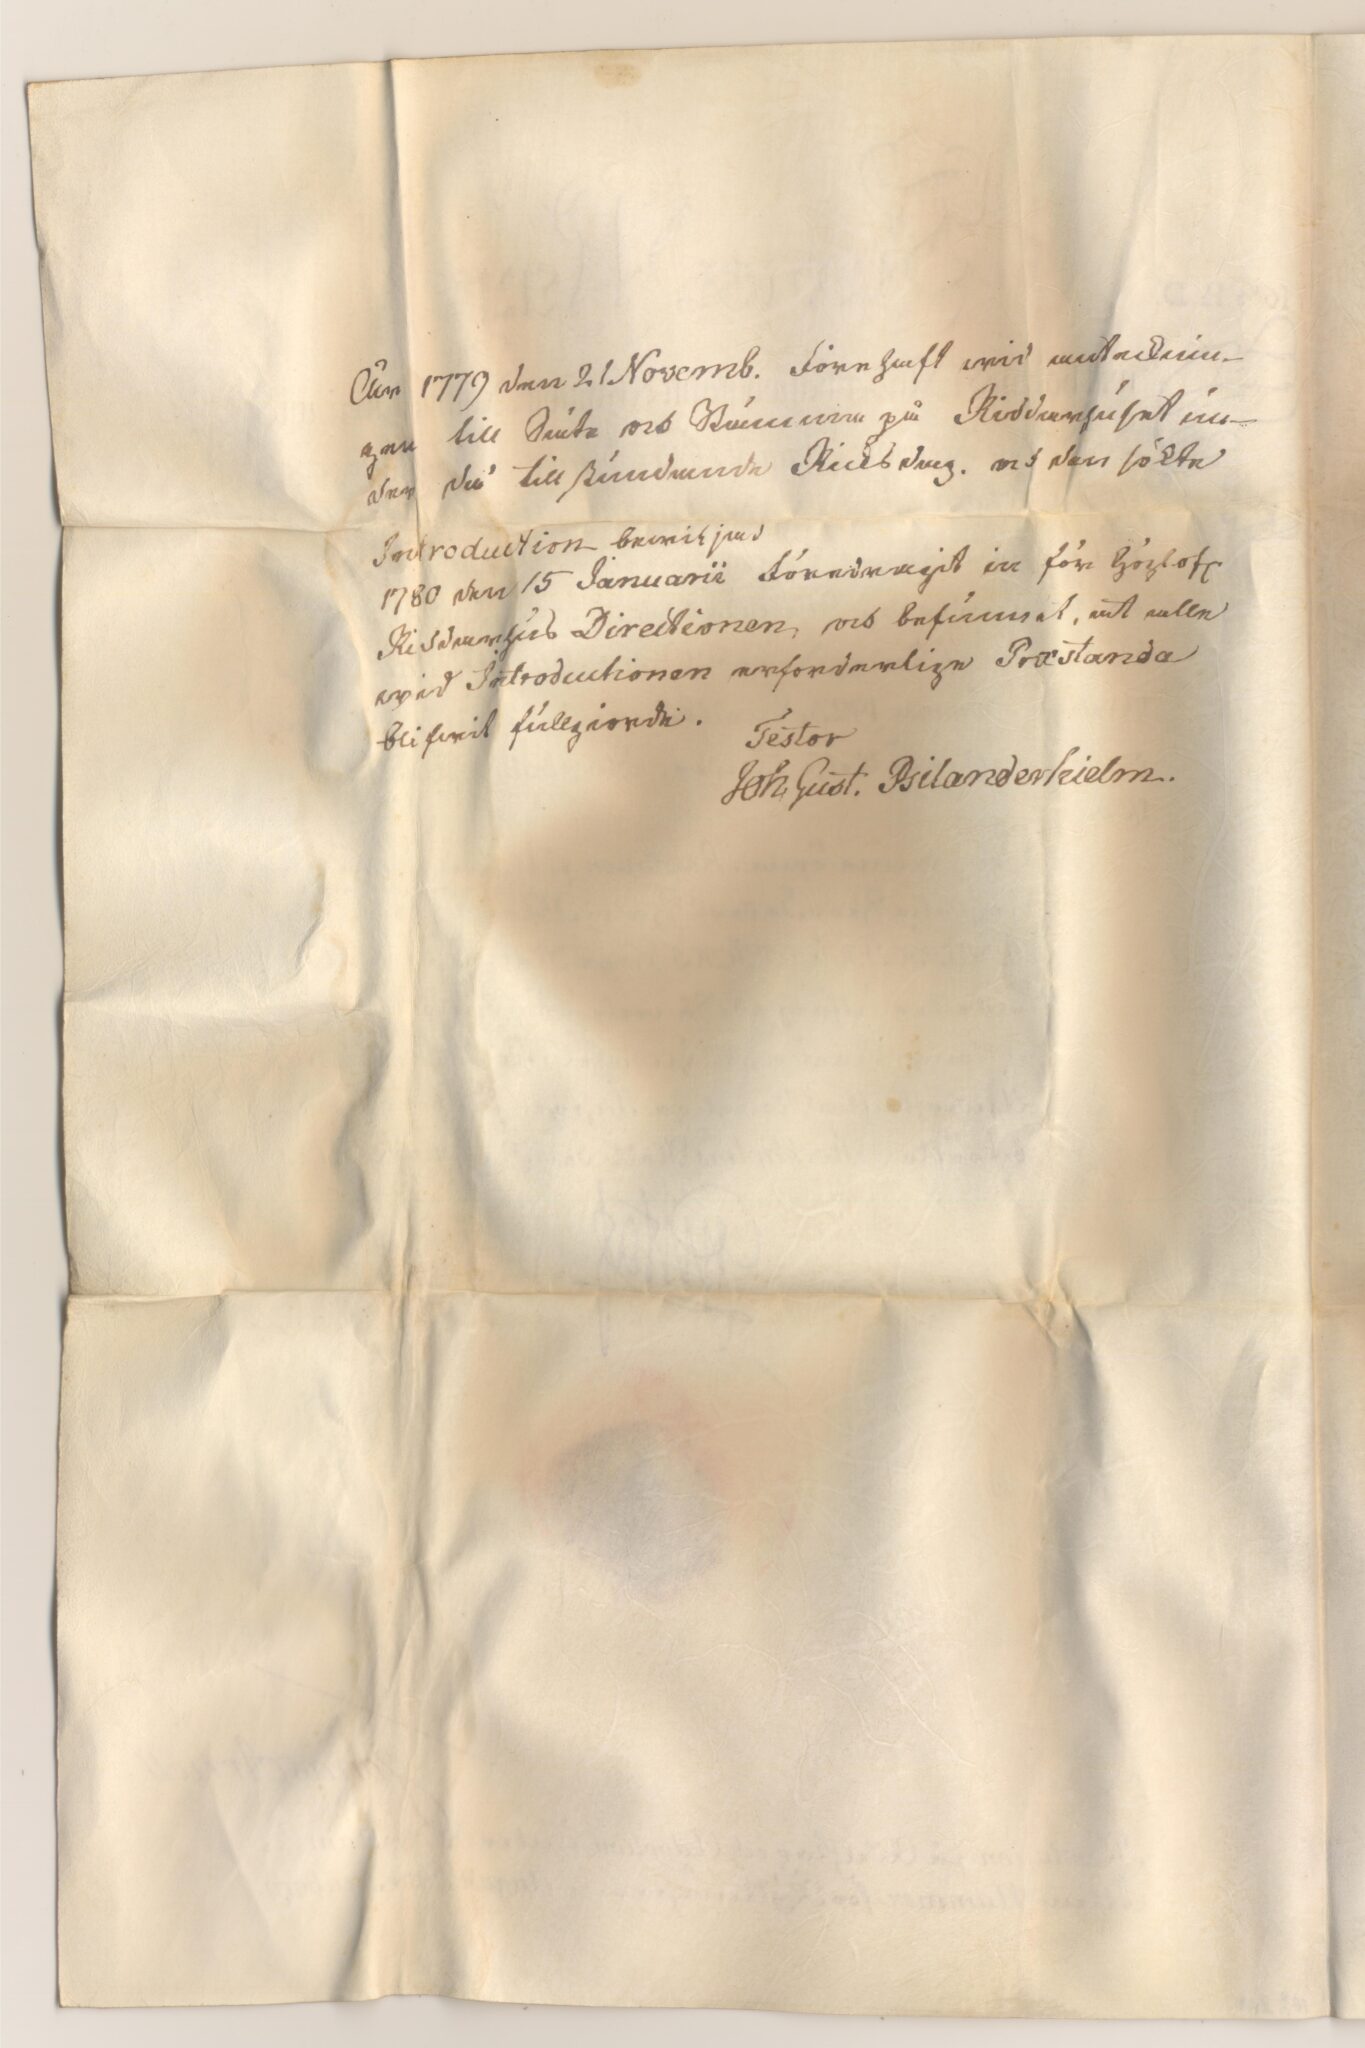 Åhr 1779 den 21 Novemb. Förehaft wid antecknin-
gen till Säte och Stämma på Riddarhuset un-
der då tillstundande Riksdag. och den sökte
Introduction beviljad
1780 den 15 Januarii föredragit in för höglofl.
Riddarhus Directionen, och befunnet, att alla
wid Introductionen erforderlige Præstanda
blifvit fullgiorde.
Testor
Joh. Gust. Psilanderhielm.